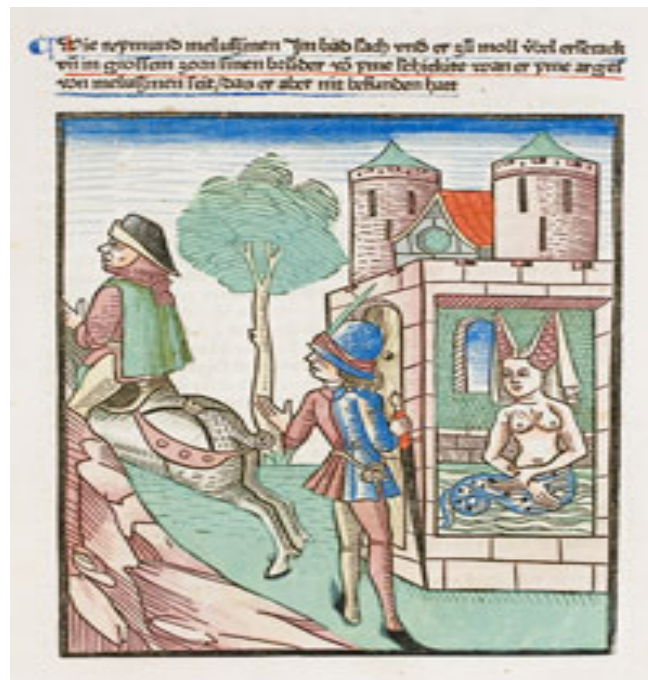 Wie reymund meluſinen Jm bad ſach vnd er zů moll v̈bel erſcrack
vñ in groſſem zorn ſinen brůder võ yme ſchickte wan er yme arges
von meluſinen ſeit/das er aber nit befunden hatt